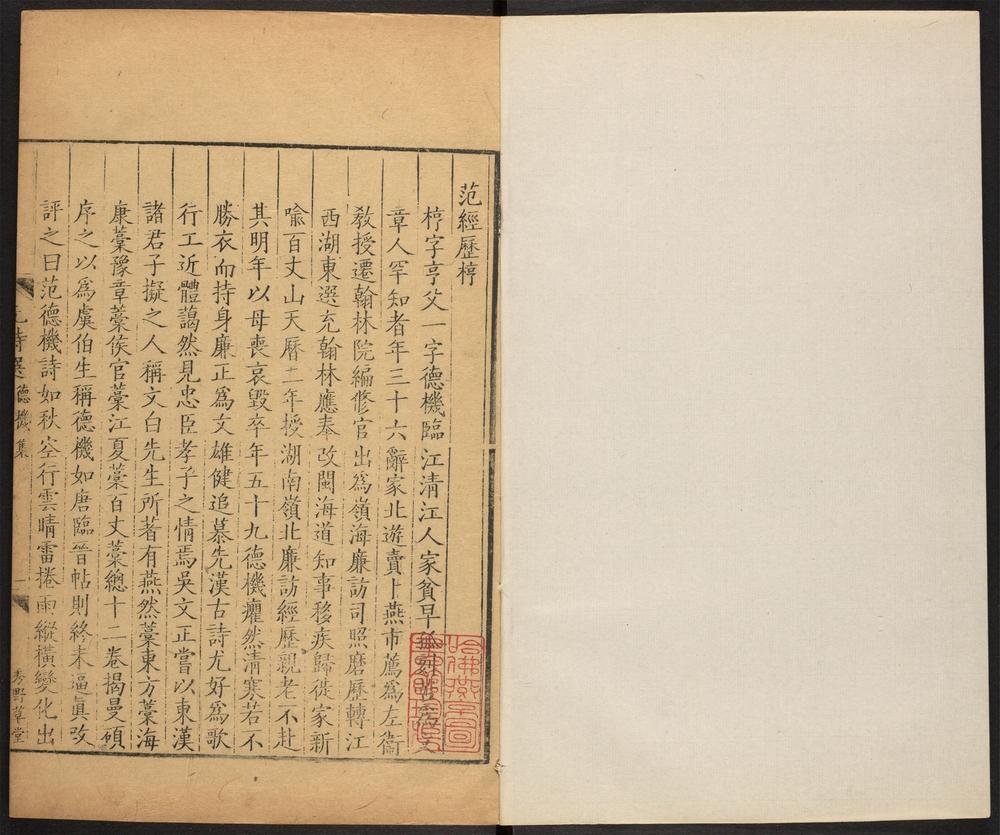 范經歷梈
梈字亨父一字德機臨江清江人家貧早孤刻爲文
章人罕知者年三十六辭家北遊賣卜燕市薦爲左衛
敎授遷翰林院編修官出爲嶺海廉訪司照磨歷轉江
西湖東選充翰林應奉改閩海道知事移疾歸徙家新
喻百丈山天曆二年授湖南嶺北廉訪經歷親老不赴
其明年以母喪哀毀卒年五十九德機癯然清寒若不
勝衣而持身廉正爲文雄健追慕先漢古詩尤好爲歌
行工近體藹然見忠臣孝子之情焉吳文正嘗以東漢
諸君子擬之人稱文白先生所著有燕然藳東方藳海
康藳豫章藳侯官藳江夏藳百丈藳總十二卷揭曼碩
序之以爲虞伯生稱德機如唐臨晉帖則終未逼眞改
評之曰范德機詩如秋空行雲晴雷捲雨縱橫變化出
元詩選 德機集 一 秀野草堂